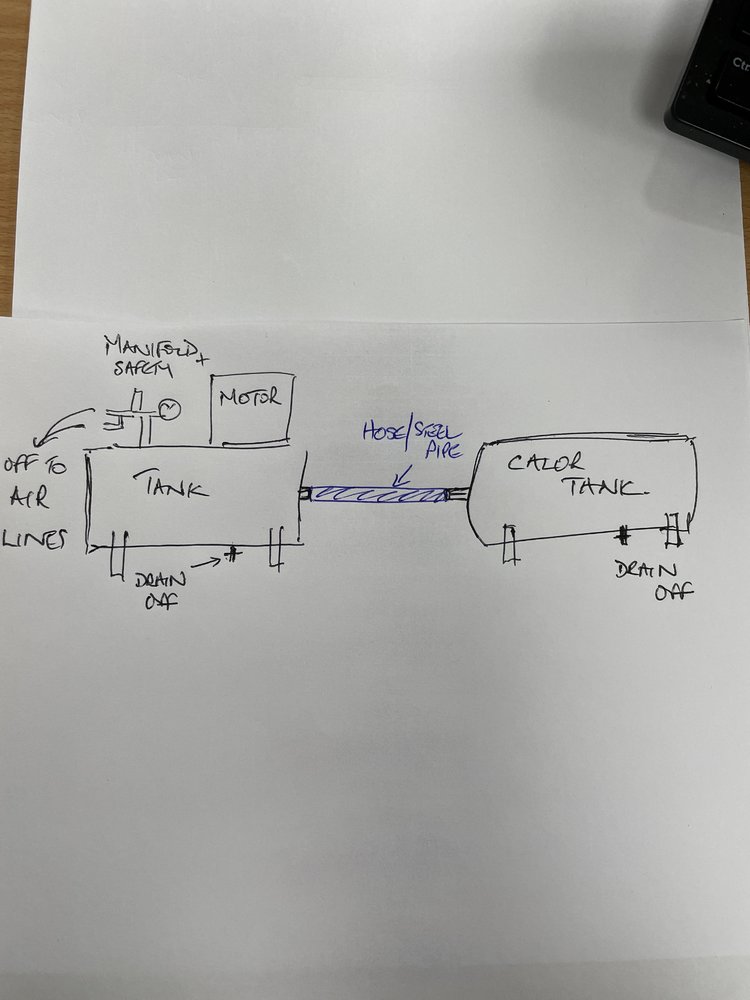 Ctrl
MANIFOLD +
SAFETY
MOTOR
OFF TO
AIR
LINES
TANK
DRAIN
OFF
HOSE/STEEL
PIPE
CALOR
TANK.
DRAIN
OFF